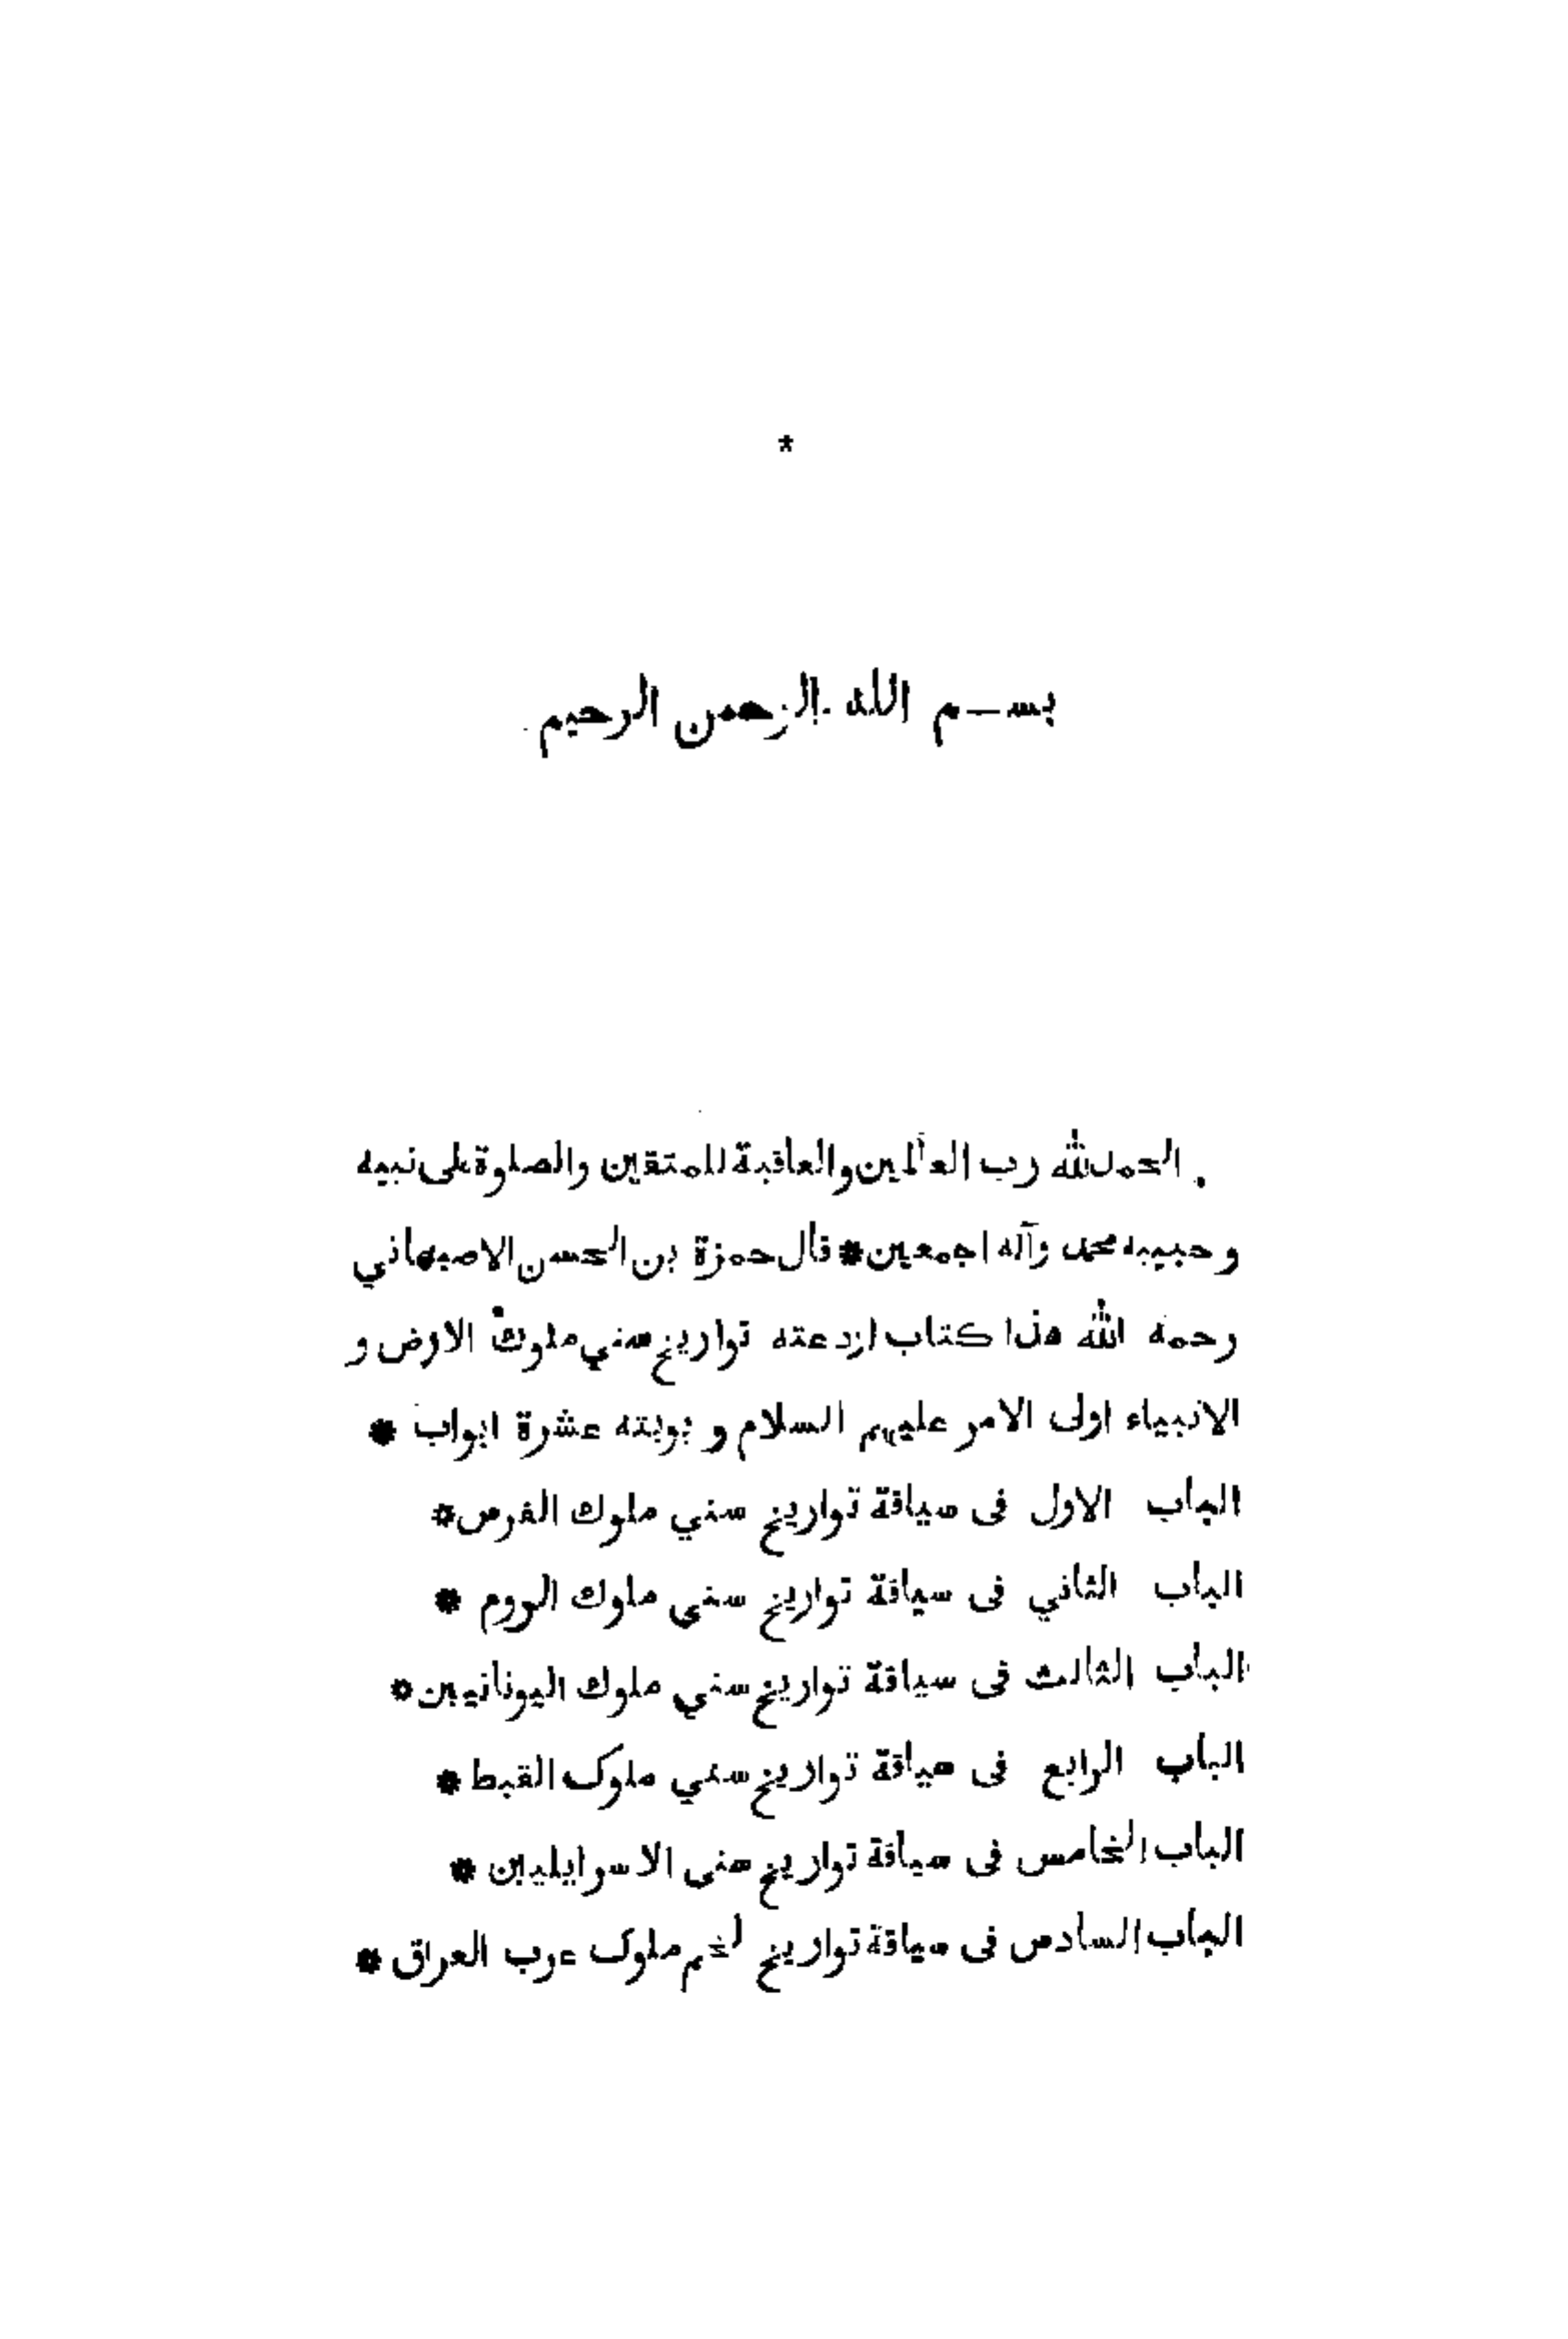 *
بســم الله الرحمن الرحيم
الحمد لله رب العالمين والعاقبة للمتقين والصلوة على نبيه
و حبيبه محمد وآله اجمعين * قال حمزة بن الحسن الاصبهاني
رحمه الله هذا كتاب اودعته تواريخ سني ملوك الارض و
الانبياء اولى الامر عليهم السلام و بوبته عشرة ابواب *
الباب الاول فى سياقة تواريخ سني ملوك الفرس *
الباب الثاني فى سياقة تواريخ سنى ملوك الروم *
الباب الثالث فى سياقة تواريخ سني ملوك اليونانيين *
الباب الرابع فى سياقة تواريخ سني ملوک القبط *
الباب الخامس فى سياقة تواريخ سنى الاسرايليين *
الباب السادس فى سياقة تواريخ لخم ملوک عرب العراق *